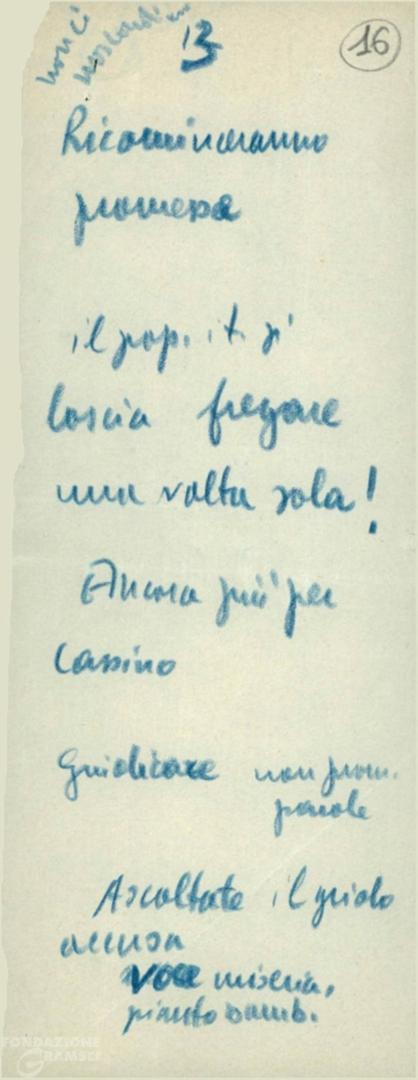 non ci
13
16
Ricominceranno
promesse
il pop. it. si
lascia fregare
una volta sola!
Ancora più per
Cassino
Giudicare non prom.
parole
Ascoltate il grido
accusa
voce miseria,
pianto bamb.
FONDAZIONE
GRAMSCI